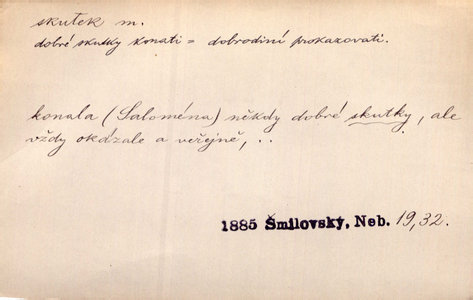 skutek m.
dobré skutky konati = dobrodiní prokazovati.
konala (Saloména) někdy dobré skutky, ale
vždy okázale a veřejně, ..
1885 Šmilovský, Neb. 19,32.